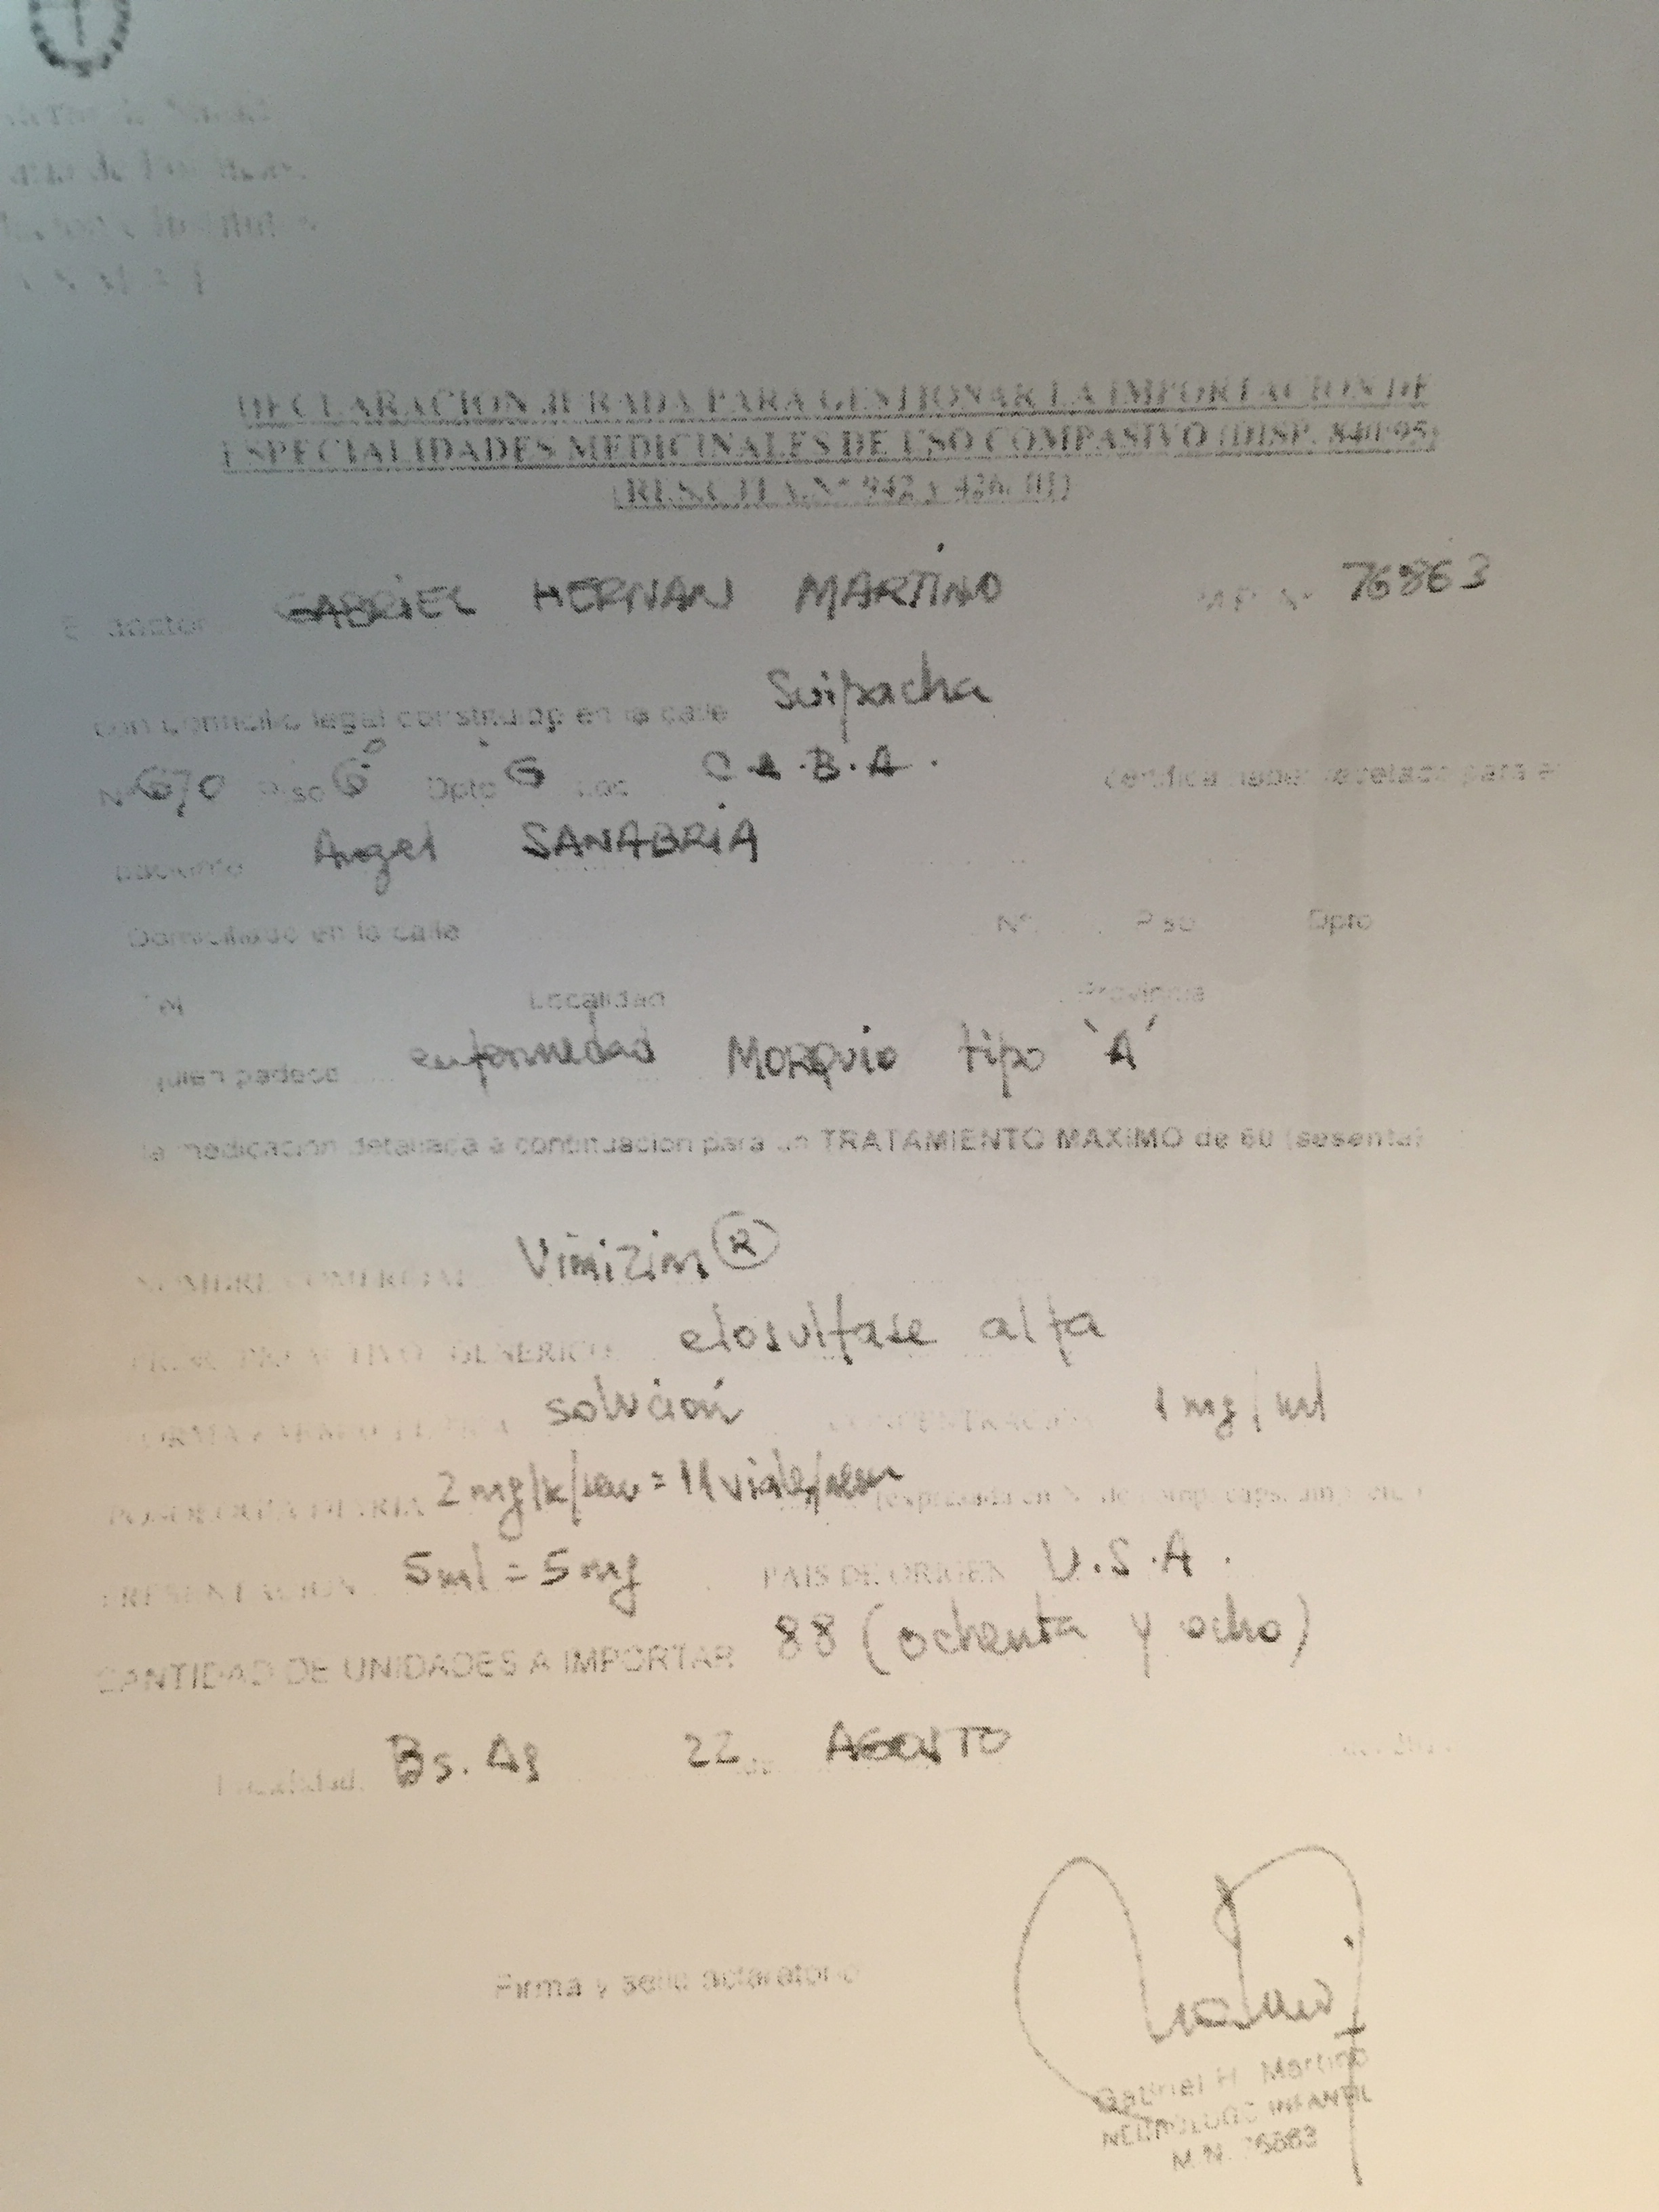 DECLARACION JURADA PARA GESTIONAR LA IMPORTACION DE
ESPECIALIDADES MEDICINALES DE USO COMPASIVO (DISP. 840/95)
Nº 942 y 426/01)
El doctor GABRIEL HERNAN MARTINO M.P. Nº 76863
con domicilio legal constituido en la calle Suipacha
Nº 670 Piso 6º Dpto G Loc C.A.B.A. certifica haber recetado para el
paciente Angel SANABRIA
Domiciliado en la calle Nº Piso Dpto
Tel Localidad Provincia
quien padece enfermedad MORQUIO tipo 'A'
la medicación detallada a continuación para un TRATAMIENTO MAXIMO de 60 (sesenta)
NOMBRE COMERCIAL Vimizim ®
PRINCIPIO ACTIVO GENERICO elosulfase alfa
FORMA FARMACEUTICA solución CONCENTRACION 1 mg/ml
POSOLOGIA DIARIA 2 mg/k/sem = 11 viales/sem (expresada en Nº de comp. caps. amp. etc.)
PRESENTACION 5 ml = 5 mg PAIS DE ORIGEN U.S.A.
CANTIDAD DE UNIDADES A IMPORTAR 88 (ochenta y ocho)
Localidad, Bs. As 22 de AGOSTO
Firma y sello aclaratorio
Gabriel H. Martino
NEUROLOGO INFANTIL
M.N. 76863